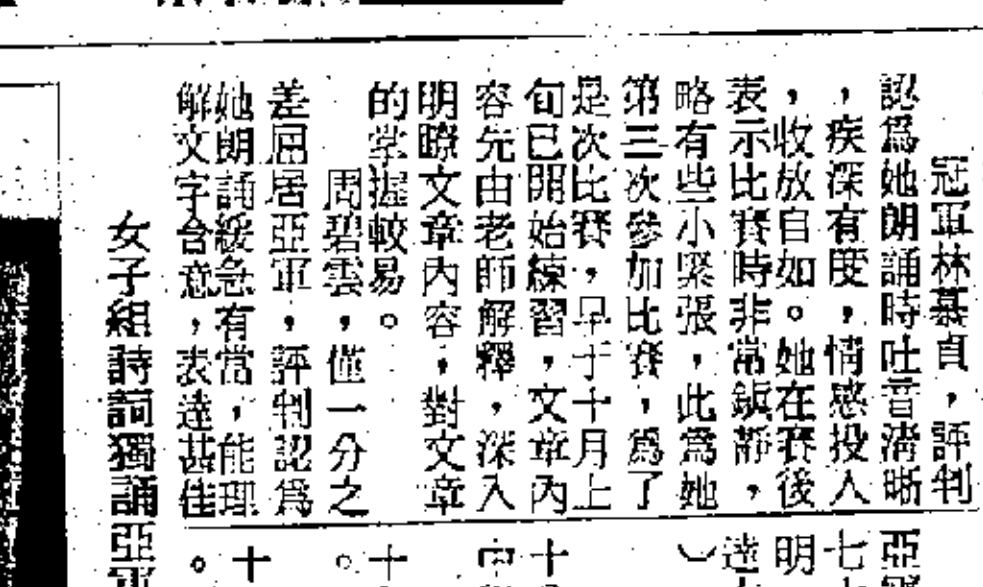 冠軍林慕貞，評判
認為她朗誦時吐音清晰
，疾深有度，情感投入
，收放自如。她在賽後
表示比賽時非常鎮靜，
略有些小緊張，此為她
第三次參加比賽，為了
是次比賽，早于十月上
旬已開始練習，文章內
容先由老師解釋，深入
明瞭文章內容，對文章
的掌握較易。
周碧雲，僅一分之
差屈居亞軍，評判認為
她朗誦緩急有當，能理
解文字含意，表達甚佳
。
女子組詩詞獨誦亞軍
亞
七
明
達
十
十
十